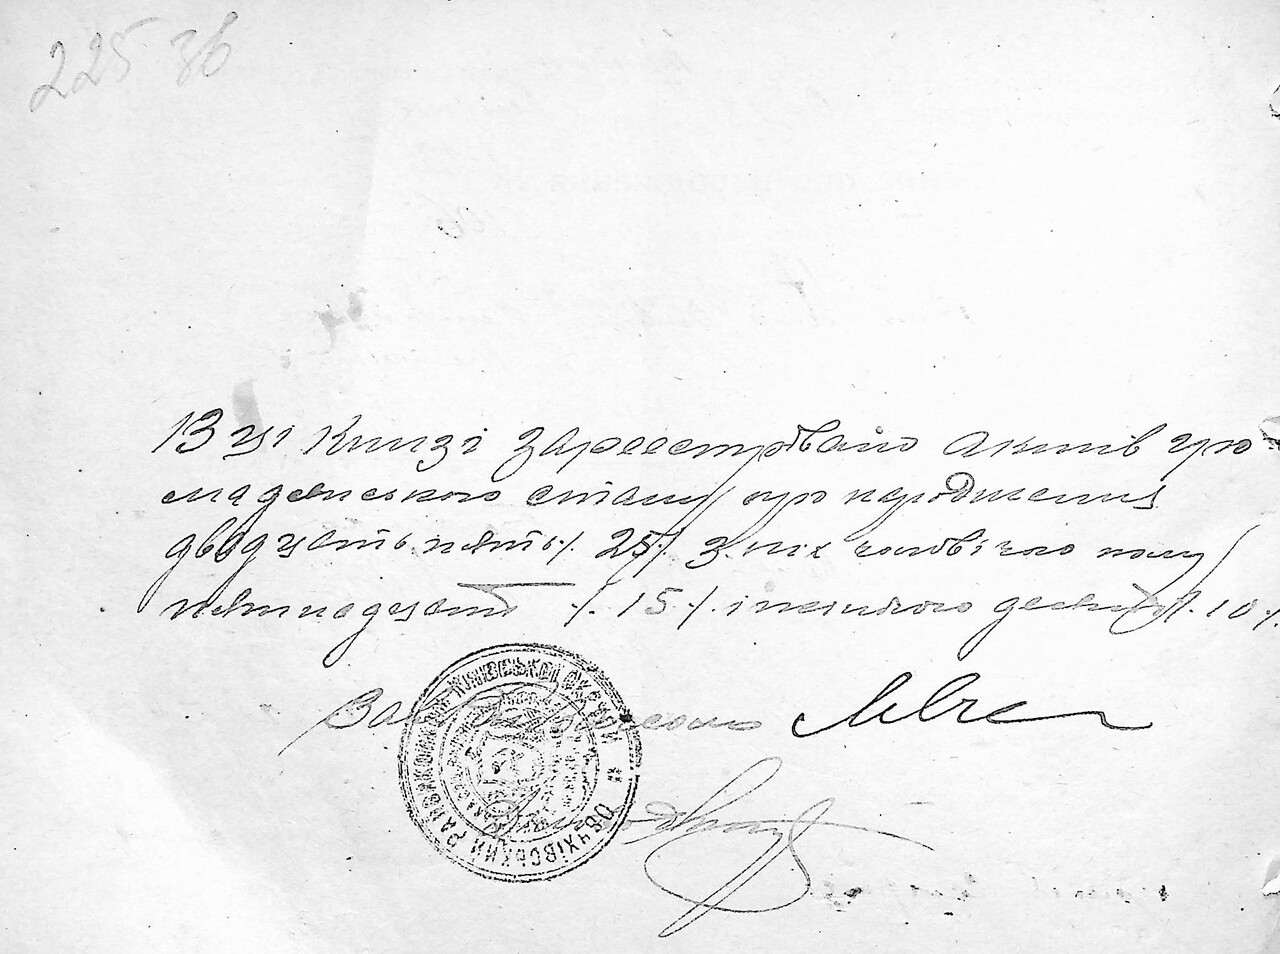 225 зв
В ці книзі зареєстровано актів гро
мадського стану про народження
двадцять пять /. 25 /. З них чоловічого полу
пятнадцять /. 15 /. і жіночого десять /. 10 /.
Зав.
ОБУХІВСЬКИЙ РАЙВИКОНКОМ КИЇВСЬКОЇ ОКРУГИ *